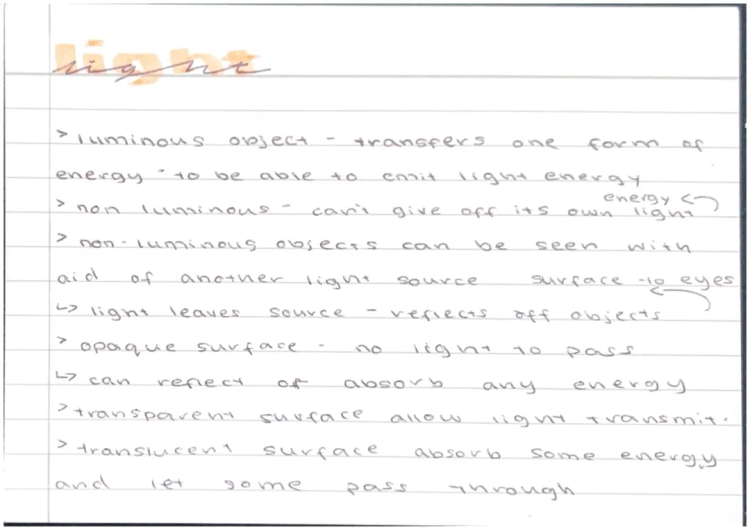 light
> luminous object - transfers one form of
energy - to be able to emit light energy
> non luminous - can't give off its own light energy
> non-luminous objects can be seen with
aid of another light source
↳ light leaves source - reflects off objects surface to eyes
> opaque surface - no light to pass
↳ can reflect of absorb any energy
> transparent surface allow light transmit.
> translucent surface absorb some energy
and let some pass through